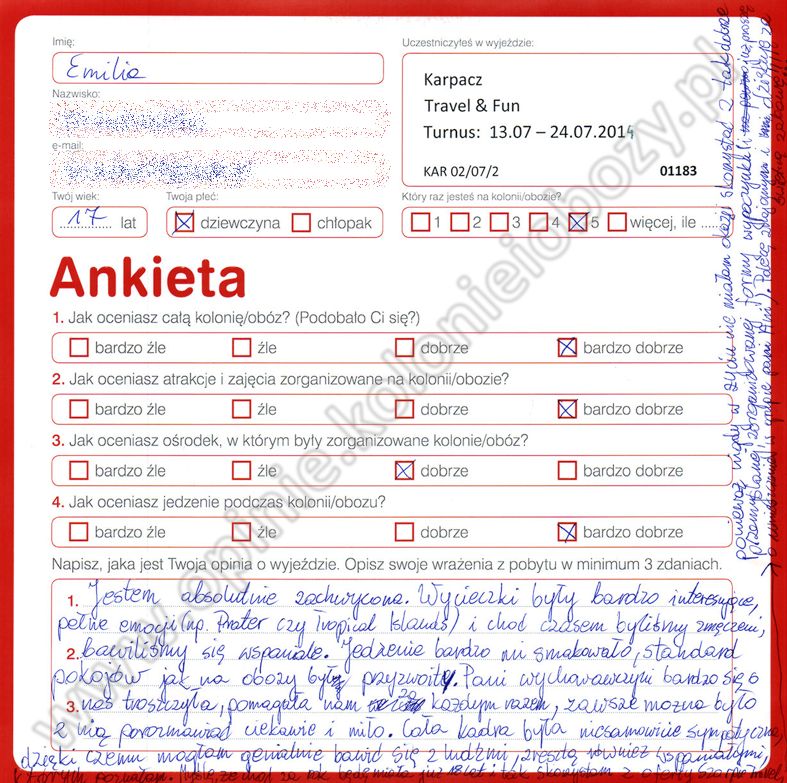 Imię:
Emilia
Nazwisko:
e-mail:
Twój wiek:
17 lat
Twoja płeć:
dziewczyna
chłopak
Uczestniczyłeś w wyjeździe:
Karpacz
Travel & Fun
Turnus: 13.07 – 24.07.2014
KAR 02/07/2
01183
Który raz jesteś na kolonii/obozie?
1 2 3 4 5 więcej, ile ......
Ankieta
1. Jak oceniasz całą kolonię/obóz? (Podobało Ci się?)
bardzo źle źle dobrze bardzo dobrze
2. Jak oceniasz atrakcje i zajęcia zorganizowane na kolonii/obozie?
bardzo źle źle dobrze bardzo dobrze
3. Jak oceniasz ośrodek, w którym były zorganizowane kolonie/obóz?
bardzo źle źle dobrze bardzo dobrze
4. Jak oceniasz jedzenie podczas kolonii/obozu?
bardzo źle źle dobrze bardzo dobrze
Napisz, jaka jest Twoja opinia o wyjeździe. Opisz swoje wrażenia z pobytu w minimum 3 zdaniach.
1. Jestem absolutnie zachwycona. Wycieczki były bardzo interesujące,
pełne emocji (np. Prater czy Tropical Islands) i choć czasem byliśmy zmęczeni,
2. bawiliśmy się wspaniale. Jedzenie bardzo mi smakowało, standard
pokojów jak na obozy był przyzwoity. Pani wychowawczyni bardzo się o
3. nas troszczyła, pomagała nam za każdym razem, zawsze można było
z nią porozmawiać ciekawie i miło. Cała kadra była niesamowicie sympatyczna,
dzięki czemu mogłam genialnie bawić się z ludźmi, zresztą również wspaniałymi,
których poznałam. Myślę, że choć za rok będę miała już 18 lat i tak skorzystam z oferty
ponieważ nigdy w życiu nie miałam okazji skorzystać z tak dobrze
przemyślanej, zorganizowanej formy wypoczynku i już proszę
o umieszczenie w grupie pani Ani). Polecę znajomym i dziękuję za
www.opinie.kolonieiobozy.pl